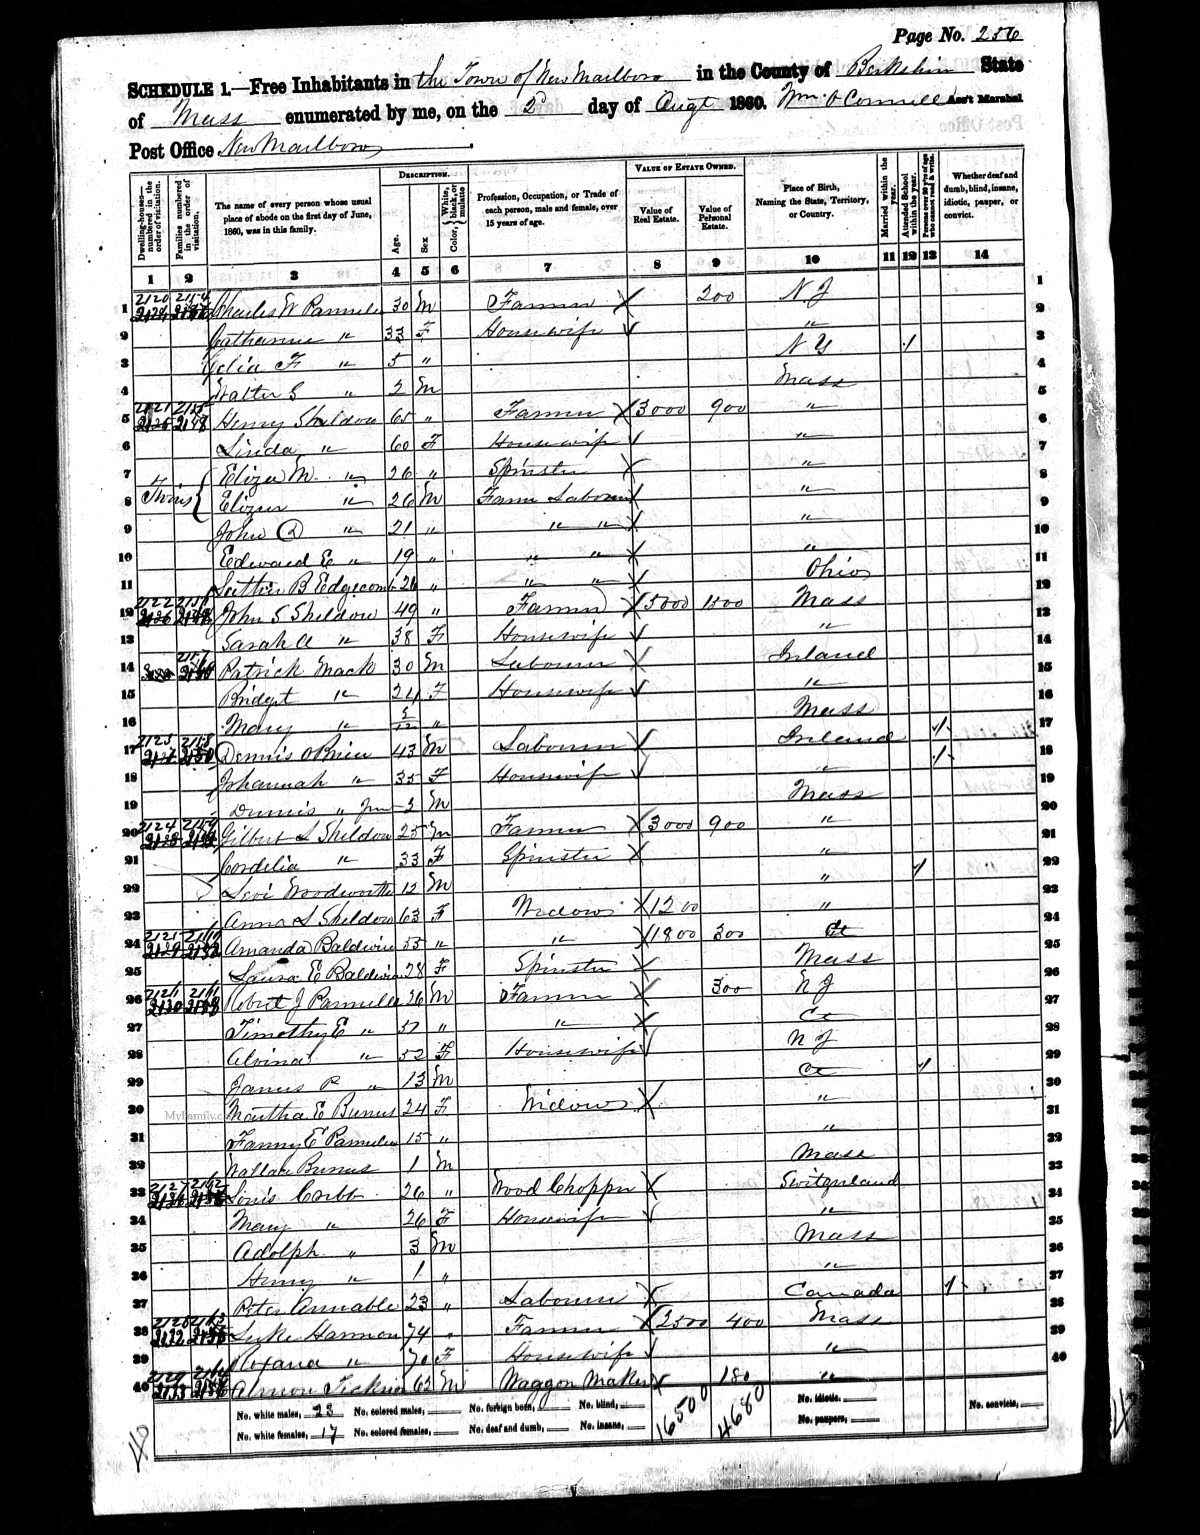 Page No. 256
SCHEDULE 1.—Free Inhabitants in the Town of New Marlboro in the County of Berkshire State
of Mass enumerated by me, on the 2d day of Augt 1860. Wm. O Connell Ass't Marshal
Post Office New Marlboro
Dwelling-houses—numbered in the order of visitation.
Families numbered in the order of visitation.
The name of every person whose usual place of abode on the first day of June, 1860, was in this family.
DESCRIPTION.
Age.
Sex
Color, White, black, or mulatto
Profession, Occupation, or Trade of each person, male and female, over 15 years of age.
VALUE OF ESTATE OWNED.
Value of Real Estate.
Value of Personal Estate.
Place of Birth, Naming the State, Territory, or Country.
Married within the year.
Attended School within the year.
Persons over 20 y'rs of age who cannot read & write.
Whether deaf and dumb, blind, insane, idiotic, pauper, or convict.
1 2 3 4 5 6 7 8 9 10 11 12 13 14
1 2120 2154 Charles W Parmelee 30 M Farmer X 200 N J 1
2 Catharine " 33 F Housewife " 2
3 Celia F " 5 " N Y / 3
4 Walter G " 2 M Mass 4
5 2121 2155 Henry Sheldon 65 " Farmer X 3000 900 " 5
6 Linda " 60 F Housewife " 6
7 Twins Eliza M " 26 " Spinster X " 7
8 Elizur " 26 M Farm Laborer " 8
9 John Q " 21 " " " X " 9
10 Edward E " 19 " " " X " 10
11 B Edgecomb 26 " " " X Ohio 11
12 2122 2156 John S Sheldon 49 " Farmer X 5000 1500 Mass 12
13 Sarah A " 38 F Housewife " 13
14 2157 Patrick Mack 30 M Laborer X Ireland 14
15 Bridget " 24 F Housewife " 15
16 Mary " /12 " Mass 16
17 2123 2158 Dennis OBrien 43 M Laborer Ireland / 17
18 Johannah " 35 F Housewife " / 18
19 Dennis " Jun 3 M Mass 19
20 2124 2159 Gilbert S Sheldon 25 M Farmer X 3000 900 " 20
21 Cordelia " 33 F Spinster X " 21
22 Levi Woodworth 12 M " / 22
23 Anna S Sheldon 63 F Widow X 1200 " 23
24 2125 2160 Amanda Baldwin 55 " " X 1800 300 Ct 24
25 Laura E Baldwin 28 F Spinster X Mass 25
26 2126 2161 Robert J Parmelee 26 M Farmer X 300 N J 26
27 Timothy E " 57 " " X Ct 27
28 Alvina " 52 F Housewife N J 28
29 James P " 13 M Ct / 29
30 Martha E Burnus 24 F Widow X " 30
31 Fanny E Parmelee 15 " " 31
32 Wallace Burnus 1 M Mass 32
33 2127 2162 Louis Cribb 26 " Wood Chopper X Switzerland 33
34 Mary " 26 F Housewife " 34
35 Adolph " 3 M Mass 35
36 Henry " 1 " " 36
37 Peter Annable 23 " Laborer X Canada / 37
38 2128 2163 Luke Harmon 74 " Farmer X 2500 400 Mass 38
39 Roxana " 70 F Housewife " 39
40 2129 2164 Almon 62 M Waggon Maker X 180 " 40
No. white males, 23 No. colored males, No. foreign born, No. blind, 16500 4680 No. idiotic, No. convicts,
No. white females, 17 No. colored females, No. deaf and dumb, No. insane, No. paupers,
40